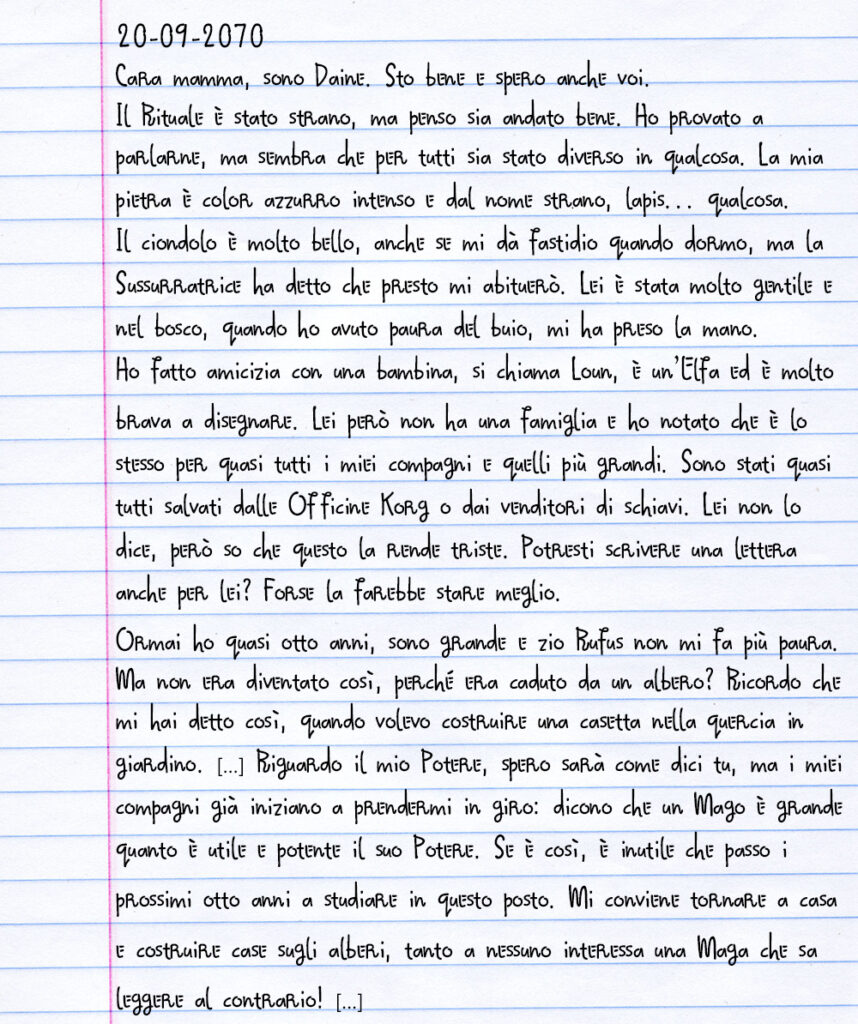 20-09-2070
Cara mamma, sono Daine. Sto bene e spero anche voi.
Il Rituale è stato strano, ma penso sia andato bene. Ho provato a
parlarne, ma sembra che per tutti sia stato diverso in qualcosa. La mia
pietra è color azzurro intenso e dal nome strano, lapis... qualcosa.
Il ciondolo è molto bello, anche se mi dà fastidio quando dormo, ma la
Sussurratrice ha detto che presto mi abituerò. Lei è stata molto gentile e
nel bosco, quando ho avuto paura del buio, mi ha preso la mano.
Ho fatto amicizia con una bambina, si chiama Loun, è un'Elfa ed è molto
brava a disegnare. Lei però non ha una famiglia e ho notato che è lo
stesso per quasi tutti i miei compagni e quelli più grandi. Sono stati quasi
tutti salvati dalle Officine Korg o dai venditori di schiavi. Lei non lo
dice, però so che questo la rende triste. Potresti scrivere una lettera
anche per lei? Forse la farebbe stare meglio.
Ormai ho quasi otto anni, sono grande e zio Rufus non mi fa più paura.
Ma non era diventato così, perché era caduto da un albero? Ricordo che
mi hai detto così, quando volevo costruire una casetta nella quercia in
giardino. [...] Riguardo il mio Potere, spero sarà come dici tu, ma i miei
compagni già iniziano a prendermi in giro: dicono che un Mago è grande
quanto è utile e potente il suo Potere. Se è così, è inutile che passo i
prossimi otto anni a studiare in questo posto. Mi conviene tornare a casa
e costruire case sugli alberi, tanto a nessuno interessa una Maga che sa
leggere al contrario! [...]